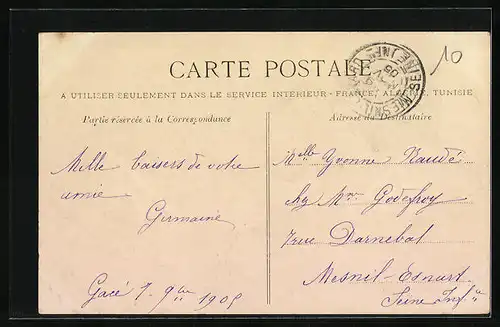 10
CARTE POSTALE
A UTILISER SEULEMENT DANS LE SERVICE INTÉRIEUR - FRANCE, ALGÉRIE, TUNISIE
Partie réservée à la Correspondance
Adresse du Destinataire
Mille baisers de votre
amie
Germaine
Gacé 7. 9bre 1905
Melle Yvonne Naudé
chez Mr Godefroy
rue Darnetal
Mesnil-Esnart
Seine Infre